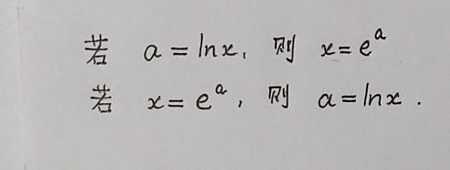 若 a = lnx, 则 x = eᵃ
若 x = eᵃ, 则 a = lnx.